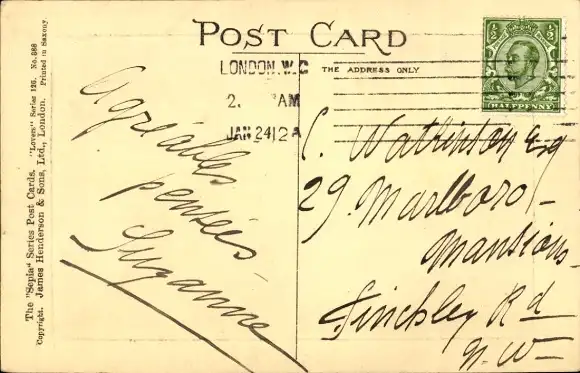 POST CARD
LONDON. W.C
2. AM
JAN 24 12 A
THE ADDRESS ONLY
½ ½
HALFPENNY
The "Sepia" Series Post Cards. "Lovers" Series 126. No. 888
Copyright. James Henderson & Sons, Ltd., London. Printed in Saxony.
Agréables
pensées
Suzanne
C. Watkinson Esq
29. Marlboro'-
Mansions
Finchley Rd
N. W-